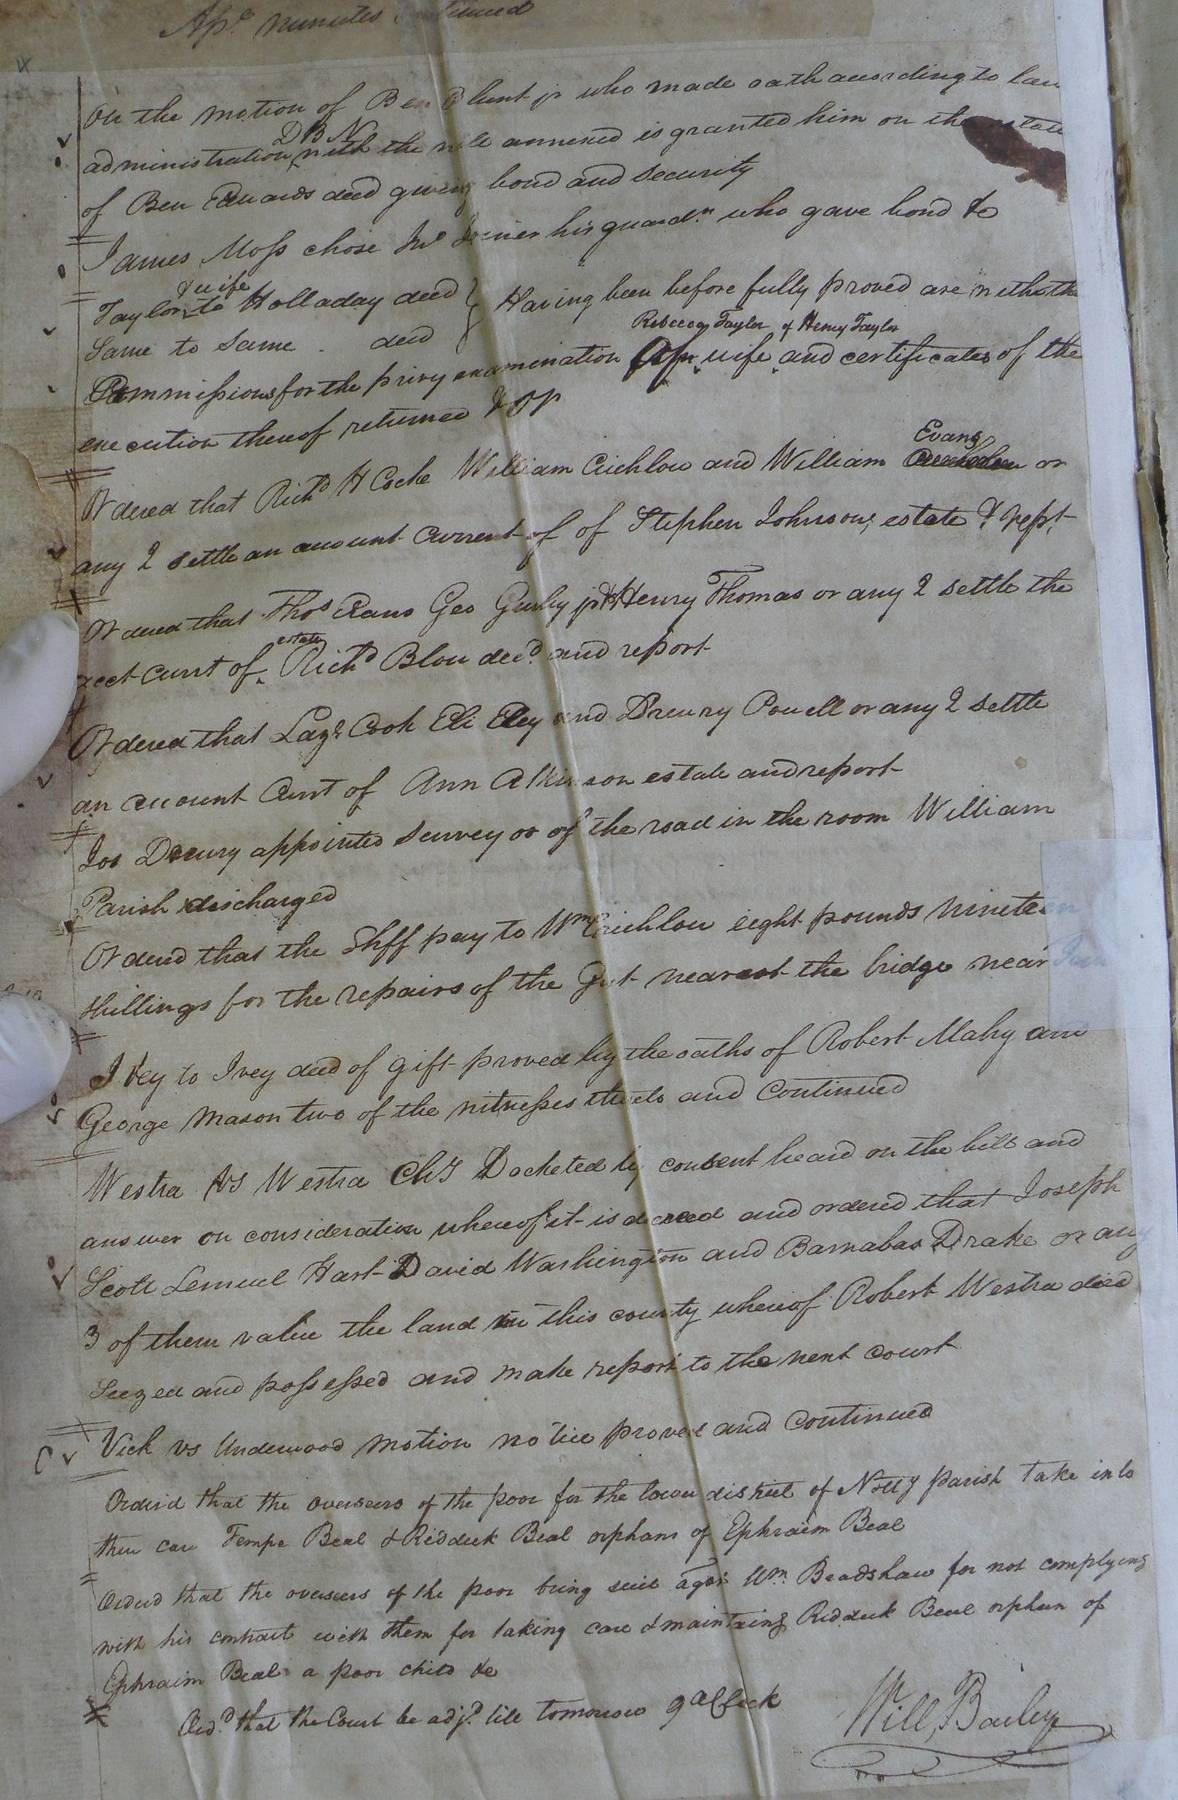 Ap.e minutes continued
On the motion of Ben Blunt jr who made oath according to law
D B N
administration with the will annexed is granted him on the estate
of Ben Edwards decd giving bond and security
James Moss chose Jno Joiner his guard.n who gave bond &c
& wife
Taylor to Holladay deed } Having been before fully proved are with the
Rebecca Taylor of Henry Taylor
Same to same . deed
Commissions for the privy examination wife and certificates of the
execution thereof returned & OR
Evans
Ordered that Rich.d H Cocke William Crichlow and William or
any 2 settle an account current of of Stephen Johnsons estate & rept
Ordered that Tho.s Geo Gurley jr & Henry Thomas or any 2 settle the
estate
acct curt of Rich.d Blow decd. and report
Ordered that Laz.s Cook Eli Eley and Drewry Powell or any 2 settle
an account Curt of Ann Atkinson estate and report
Jos Drewry appointed surveyor of the road in the room William
Parish discharged
Ordered that the Shff pay to Wm Crichlow eight pounds nineteen
shillings for the repairs of the Gut nearest the bridge near
Ivey to Ivey deed of gift proved by the oaths of Robert Mahy and
George Mason two of the witnesses thereto and Continued
Westra vs Westra Ch'y Docketed by consent heard on the bill and
answer on consideration whereof it is decreed and ordered that Joseph
Scott Lemuel Hart David Washington and Barnabas Drake or any
3 of them value the land in this county whereof Robert Westra died
Seezed and possessed and make report to the next court
Vick vs Underwood motion notice proved and continued
Ordered that the overseers of the poor for the lower district of Nott'y parish take into
their care Tempe Beal & Reddick Beal orphans of Ephraim Beal
Ordered that the overseers of the poor bring suit agst Wm. Bradshaw for not complying
with his contract with them for taking care & maintaing Reddick Beal orphan of
Ephraim Beal a poor child &c
Ord.d that the Court be adj.d till tomorrow 9 oClock
Will, Bailey